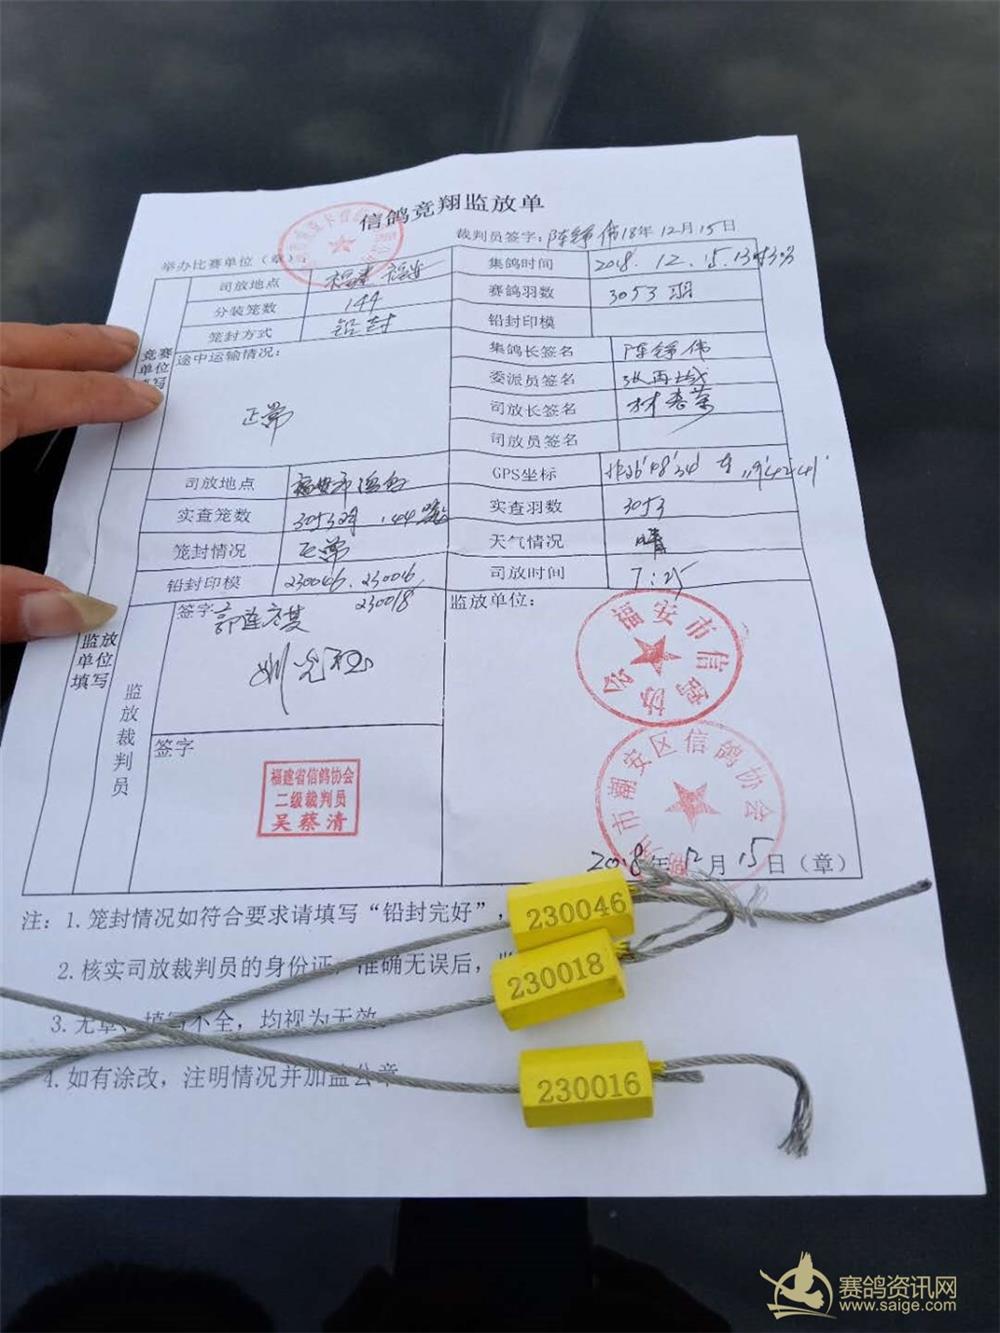 信鸽竞翔监放单
举办比赛单位（章）：
裁判员签字：陈锦伟 18年12月15日
司放地点 福建 福安 集鸽时间 2018.12.15.13时30
分装笼数 144 赛鸽羽数 3053羽
笼封方式 铅封 铅封印模
竞赛单位填写
途中运输情况：
正常
集鸽长签名 陈锦伟
委派员签名
司放长签名 林春荣
司放员签名
司放地点 福安市 GPS坐标
实查笼数 3053羽 144笼 实查羽数 3053
笼封情况 正常 天气情况 晴
铅封印模 230046、230016 司放时间 7:25
230018
监放单位填写
监放裁判员
签字
监放单位：
福安市信鸽协会
签字
福建省信鸽协会
二级裁判员
吴蔡清
潮州市潮安区信鸽协会
2018年12月15日（章）
注：1.笼封情况如符合要求请填写“铅封完好”，
2.核实司放裁判员的身份证，准确无误后，
3.无章、填写不全，均视为无效。
4.如有涂改，注明情况并加盖公章
230046
230018
230016
赛鸽资讯网
www.saige.com